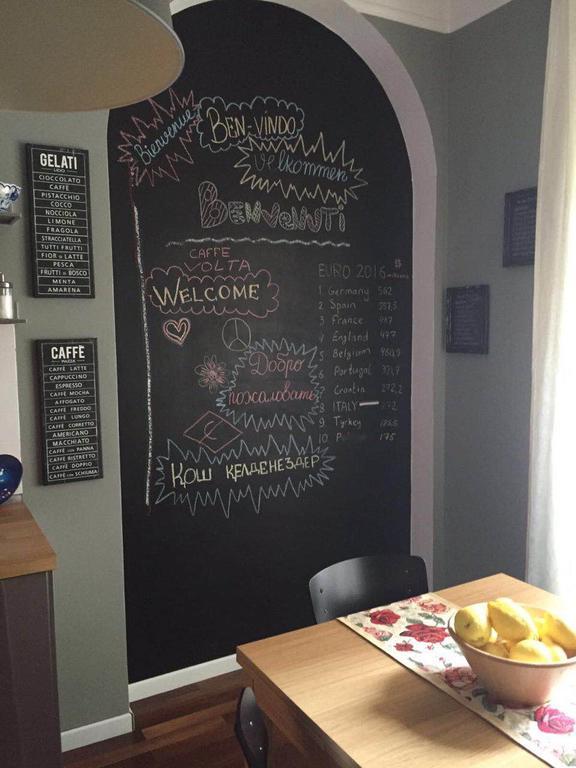 Bienvenue
BEN-VINDO
velkommen
BENVENUTI
CAFFE
VOLTA
WELCOME
Добро
пожаловать
КОШ КЕЛДЕНЕЗДЕР
EURO 2016
1 Germany 562
2 Spain
3 France
4 England 477
5 Belgium
6 Portugal
7 Croatia 272,2
8 ITALY
9 Tyrkey
10 175
GELATI
CIOCCOLATO
CAFFÈ
PISTACCHIO
COCCO
NOCCIOLA
LIMONE
FRAGOLA
STRACCIATELLA
TUTTI FRUTTI
FIOR DI LATTE
PESCA
FRUTTI DI BOSCO
MENTA
AMARENA
CAFFÈ
CAFFÈ LATTE
CAPPUCCINO
ESPRESSO
CAFFÈ MOCHA
AFFOGATO
CAFFÈ FREDDO
CAFFÈ LUNGO
CAFFÈ CORRETTO
AMERICANO
MACCHIATO
CAFFÈ RISTRETTO
CAFFÈ D'PANNA
CAFFÈ DOPPIO
CAFFÈ CON SCHIUMA